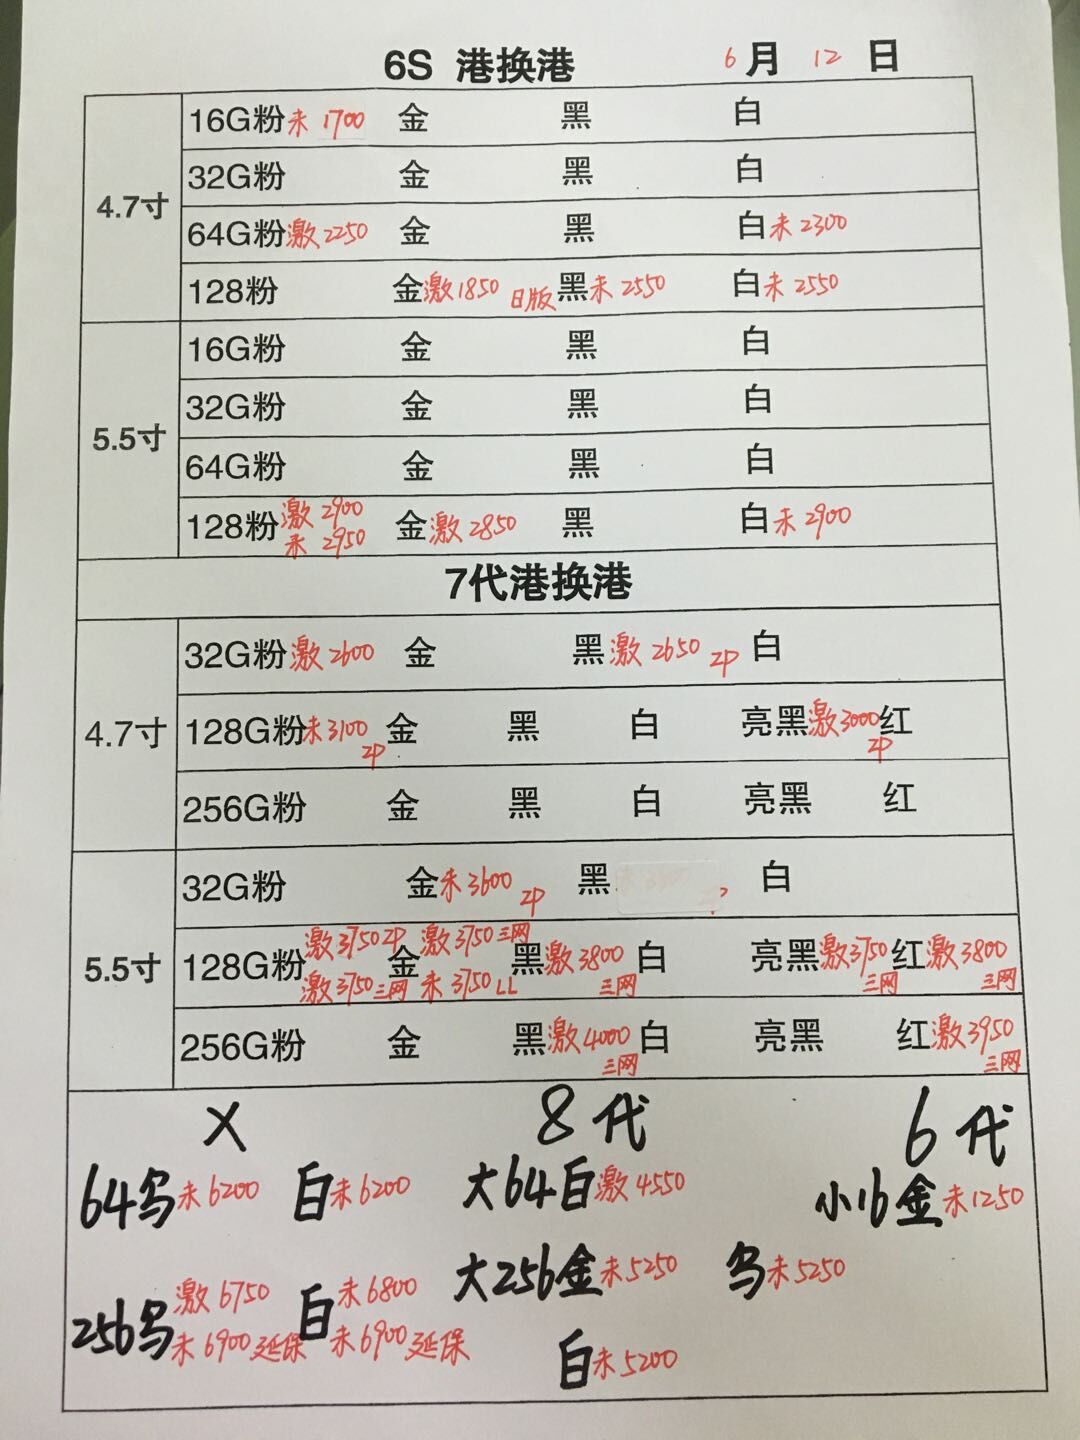 6S 港换港 6月12日
4.7寸
16G粉未1700 金 黑 白
32G粉 金 黑 白
64G粉激2250 金 黑 白未2300
128粉 金激1850 日版黑未2550 白未2550
5.5寸
16G粉 金 黑 白
32G粉 金 黑 白
64G粉 金 黑 白
128粉激2900 未2950 金激2850 黑 白未2900
7代港换港
4.7寸
32G粉激2600 金 黑激2650 ZP 白
128G粉未3100 ZP 金 黑 白 亮黑激3000 ZP 红
256G粉 金 黑 白 亮黑 红
5.5寸
32G粉 金未3600 ZP 黑 白
激3750ZP 激3750三网
128G粉 金 黑激3800 白 亮黑激3750 红激3800
激3750三网 未3750LL 三网 三网 三网
256G粉 金 黑激4000 白 亮黑 红激3950
三网 三网
X 8代 6代
64乌未6200 白未6200 大64白激4550 小16金未1250
大256金未5250 乌未5250
256乌激6750 白未6800
未6900延保 未6900延保
白未5200